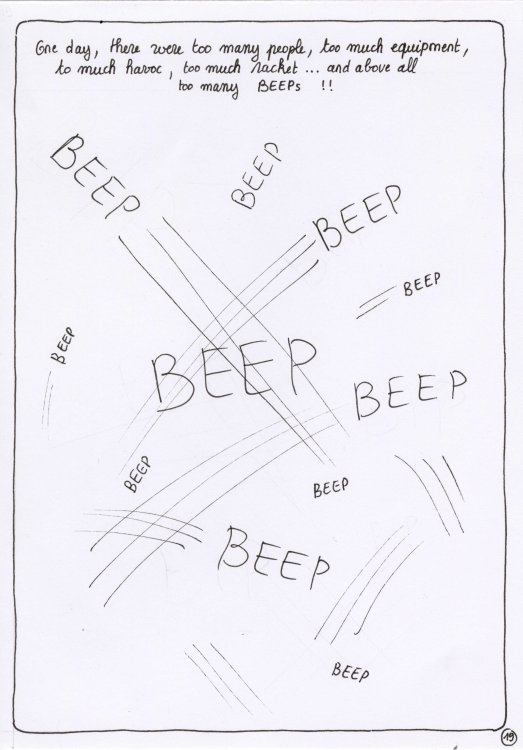 One day, there were too many people, too much equipment,
to much havoc, too much racket ... and above all
too many BEEPs !!
BEEP
BEEP
BEEP
BEEP
BEEP
BEEP
BEEP
BEEP
BEEP
BEEP
BEEP
19